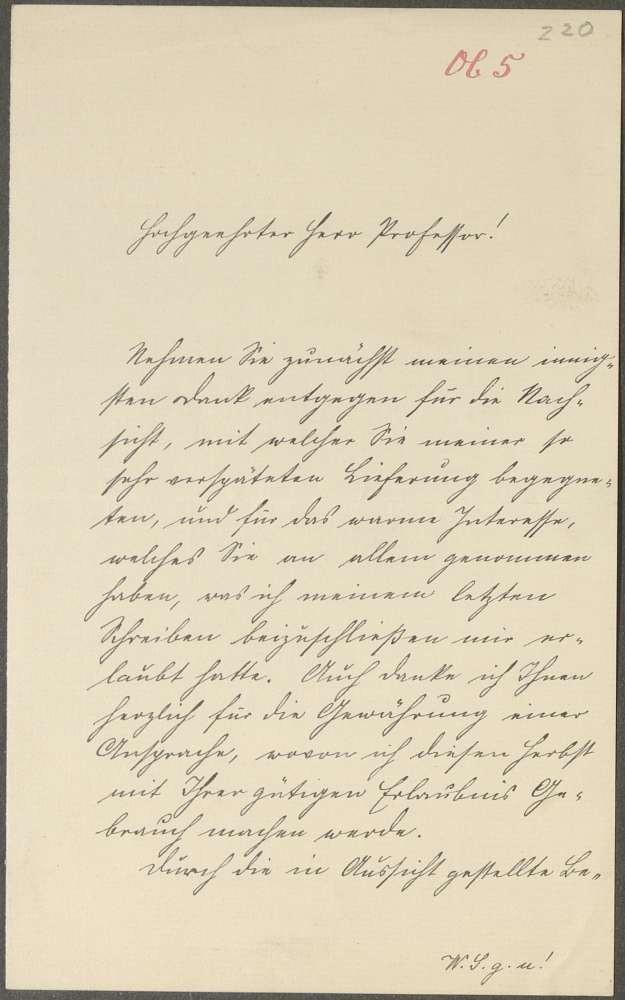 220
Ob 5
Hochgeehrter Herr Professor!
Nehmen Sie zunächst meinen innig-
sten Dank entgegen für die Nach-
sicht, mit welcher Sie meiner so
sehr verspäteten Lieferung begegne-
ten, und für das warme Interesse,
welches Sie an allem genommen
haben, was ich meinem letzten
Schreiben beizuschließen mir er-
laubt hatte. Auch danke ich Ihnen
herzlich für die Gewährung einer
Ansprache, wovon ich diesen Herbst
mit Ihrer gütigen Erlaubnis Ge-
brauch machen werde.
Durch die in Aussicht gestellte Be-
W. S. g. u!